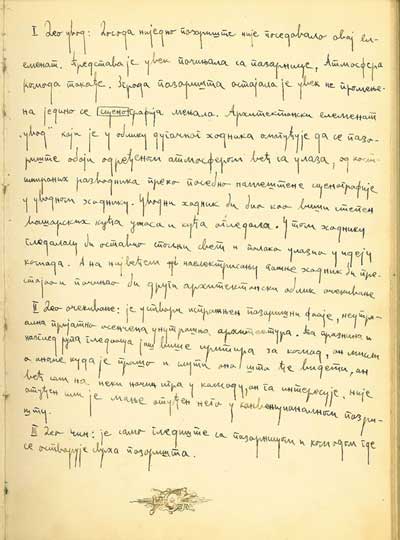 I Део увод: Досада ниједно позориште није поседавало овај ел-
еменат. Представа је увек почињала са позорнице, Атмосфера
комада такође. Зграда позоришта остајала је увек не промење-
на једино се сценографија мењала. Архитектонски елеменат
„увод" који је у облику дугачког ходника омогућује да се позо-
риште обоји одређеном атмосфером већ са улаза, од кост-
имираних разводника преко посебно намештене сценографије
у уводном ходнику. Уводни ходник би био као виши степен
вашарских кућа ужаса и кућа огледала. У том ходнику
гледалац би оставио спољни свет и полако улазио у идеју
комада. А на највећем наелектрисању ходник би пре-
стајао и почињао би други архитектонски облик очекивање
II Део очекивање: је у
пријатно осенчена унутрашња архитектура. Та празнина и
гледаоца више припрема за комад, он мисли
и шта ће видети, он
већ на неки начин игра у комаду, он га интересује, није
отуђен или је мање отуђен него у конвенционалном позори-
шту.
III Део чин: је само гледиште са позорницом и комадом где
се остварује сврха позоришта.